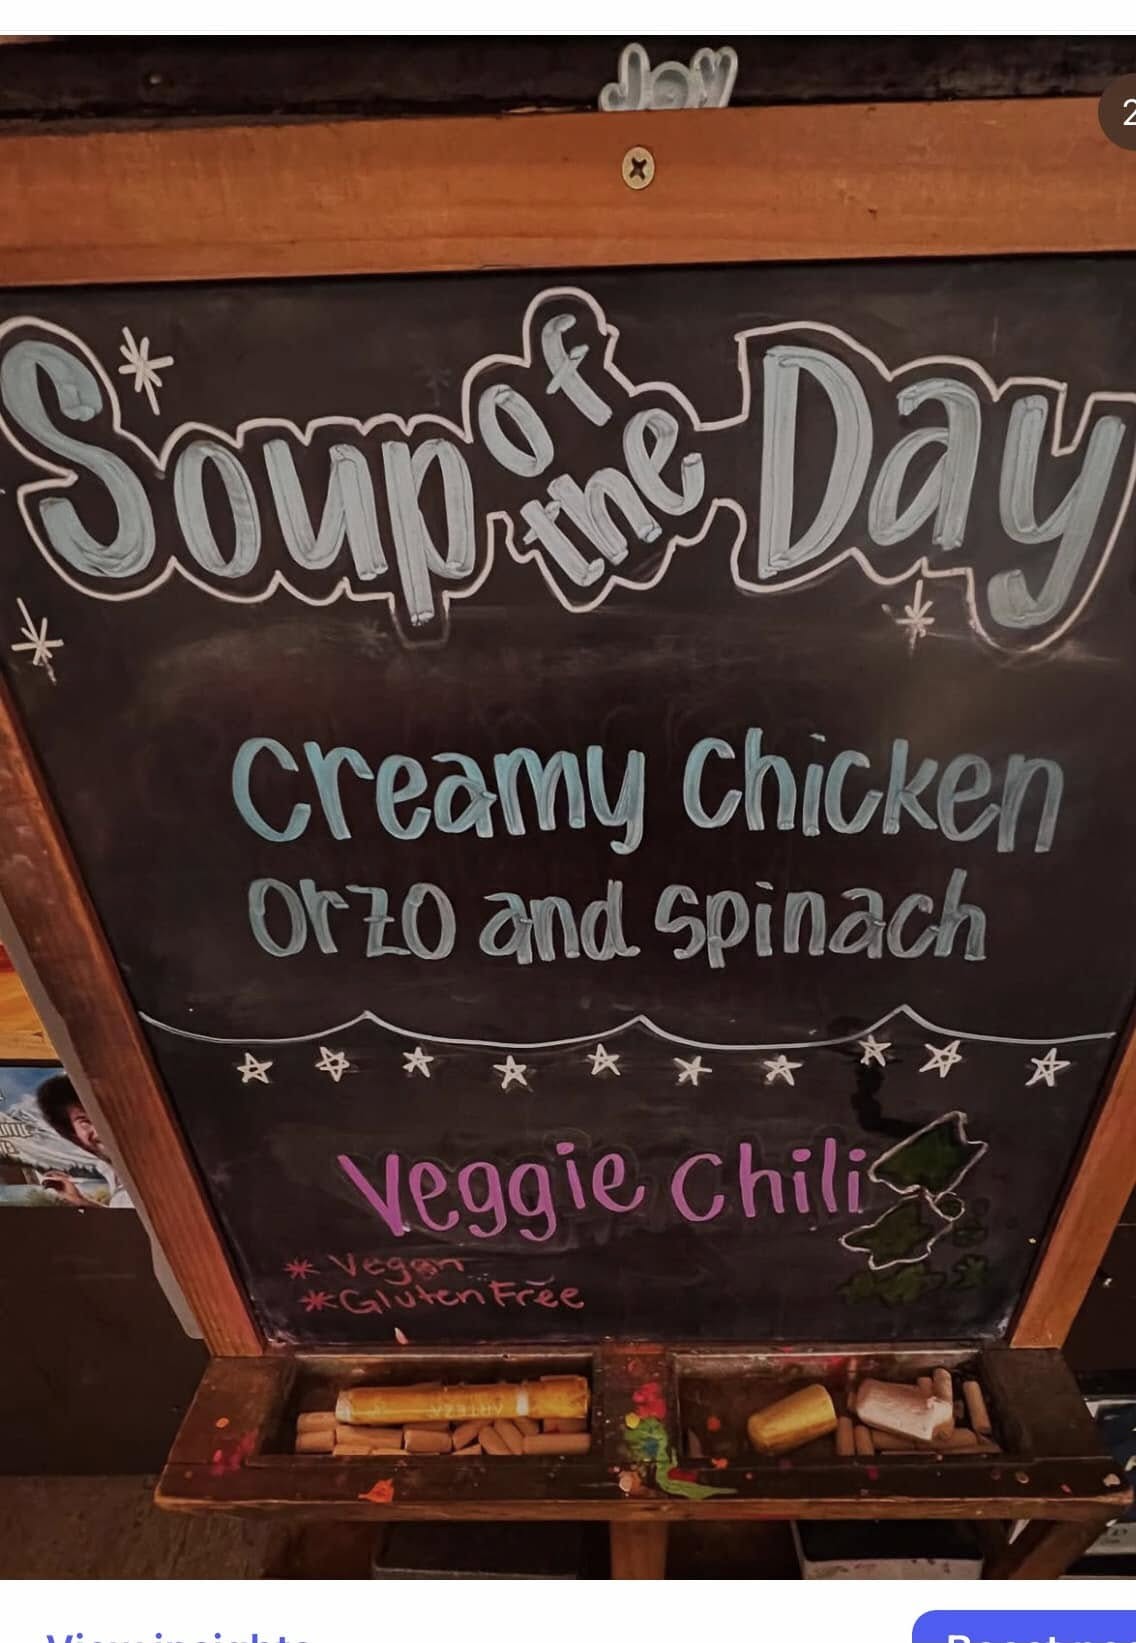 Joy
2
Soup of the Day
Creamy Chicken
Orzo and Spinach
Veggie Chili
* Vegan
* Gluten Free
ARTEZA
View insights